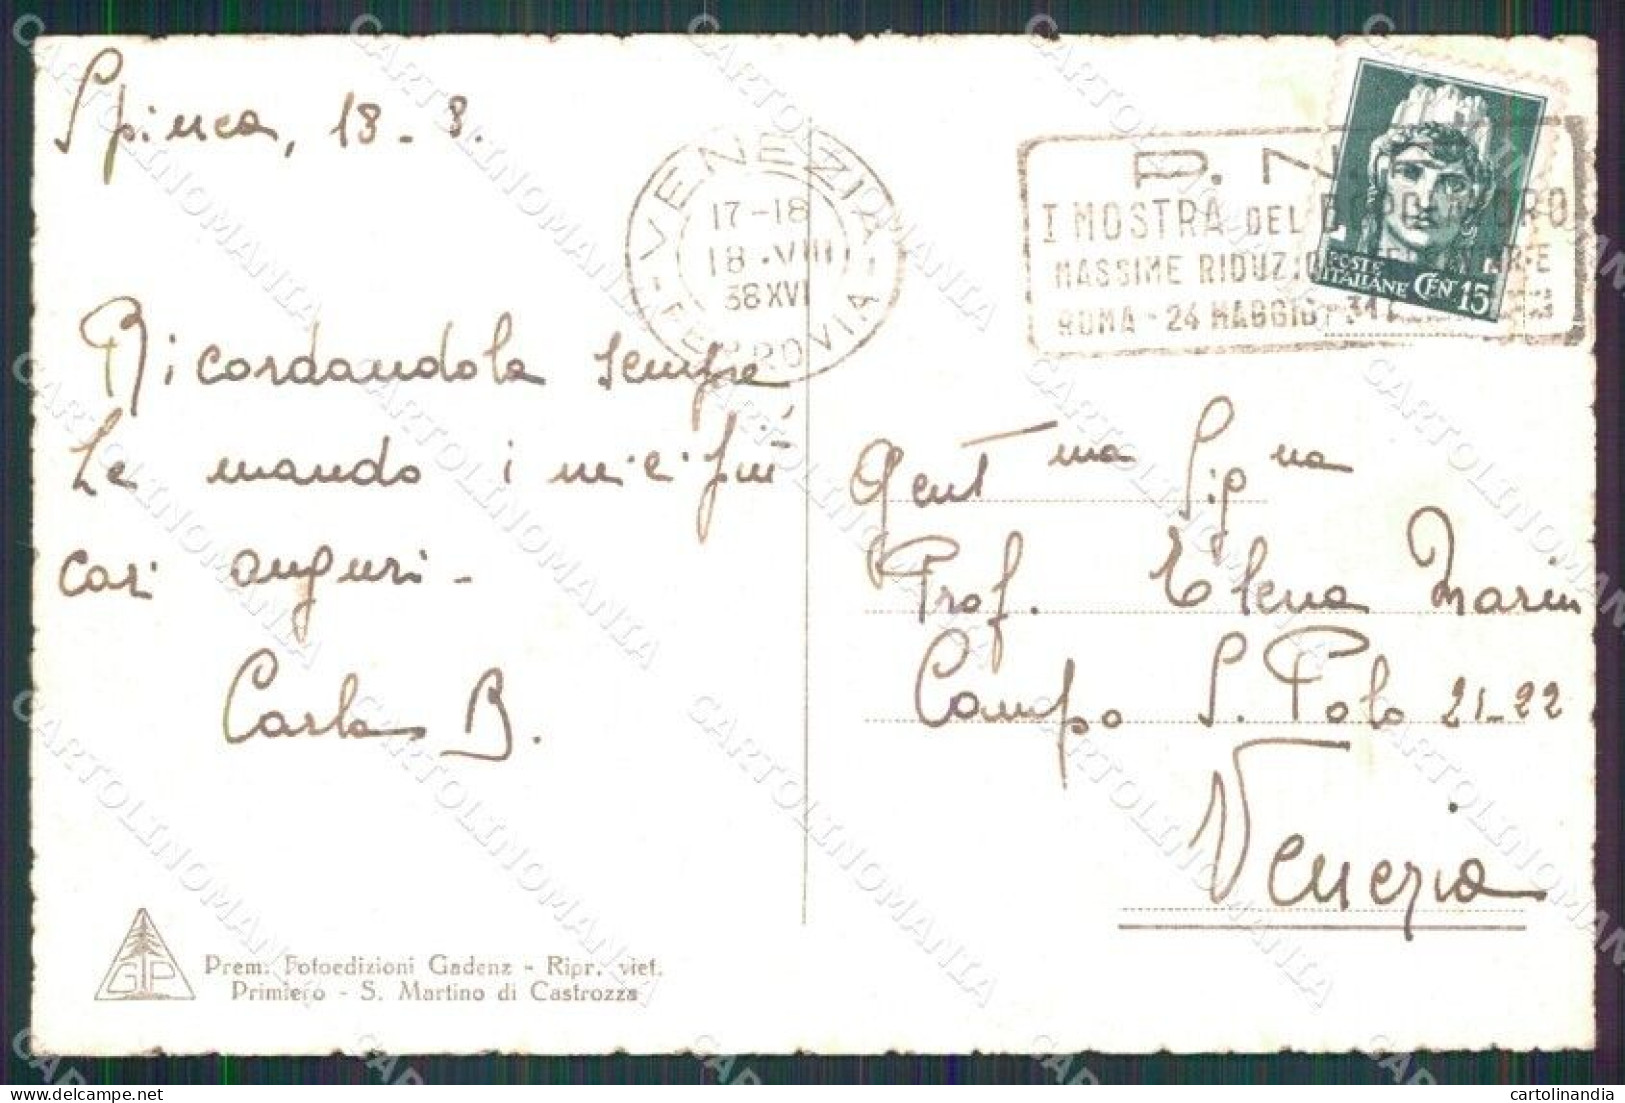 Spinea, 18 - 8.
VENEZIA
17-18
18 .VIII
38 XVI
FERROVIA
P. N.
I MOSTRA DEL DOPOLAVORO
MASSIME RIDUZIONI
ROMA - 24 MAGGIO - 31
POSTE
ITALIANE CEN 15
Ricordandola sempre
Le mando i miei più
cari auguri -
Carla B.
Gent.ma Sig.na
Prof. Elena Marin
Campo S. Polo 21-22
Venezia
GP
Prem. Fotoedizioni Gadenz - Ripr. viet.
Primiero - S. Martino di Castrozza
CARTOLINOMANIA
cartolinandia